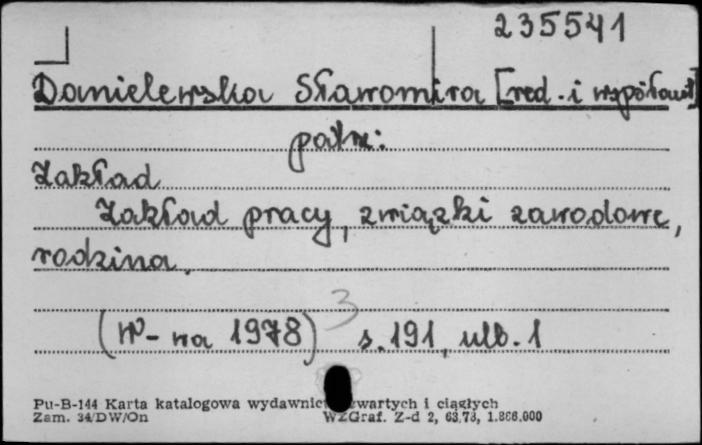 235541
Danielewska Sławomira [red. i współaut]
patrz:
Zakład
Zakład pracy, związki zawodowe,
rodzina.
3
(W-wa 1978) s. 191, ulb. 1
Pu-B-144 Karta katalogowa wydawnict zwartych i ciągłych
Zam. 34/DW/On WZGraf. Z-d 2, 63,78, 1.886.000